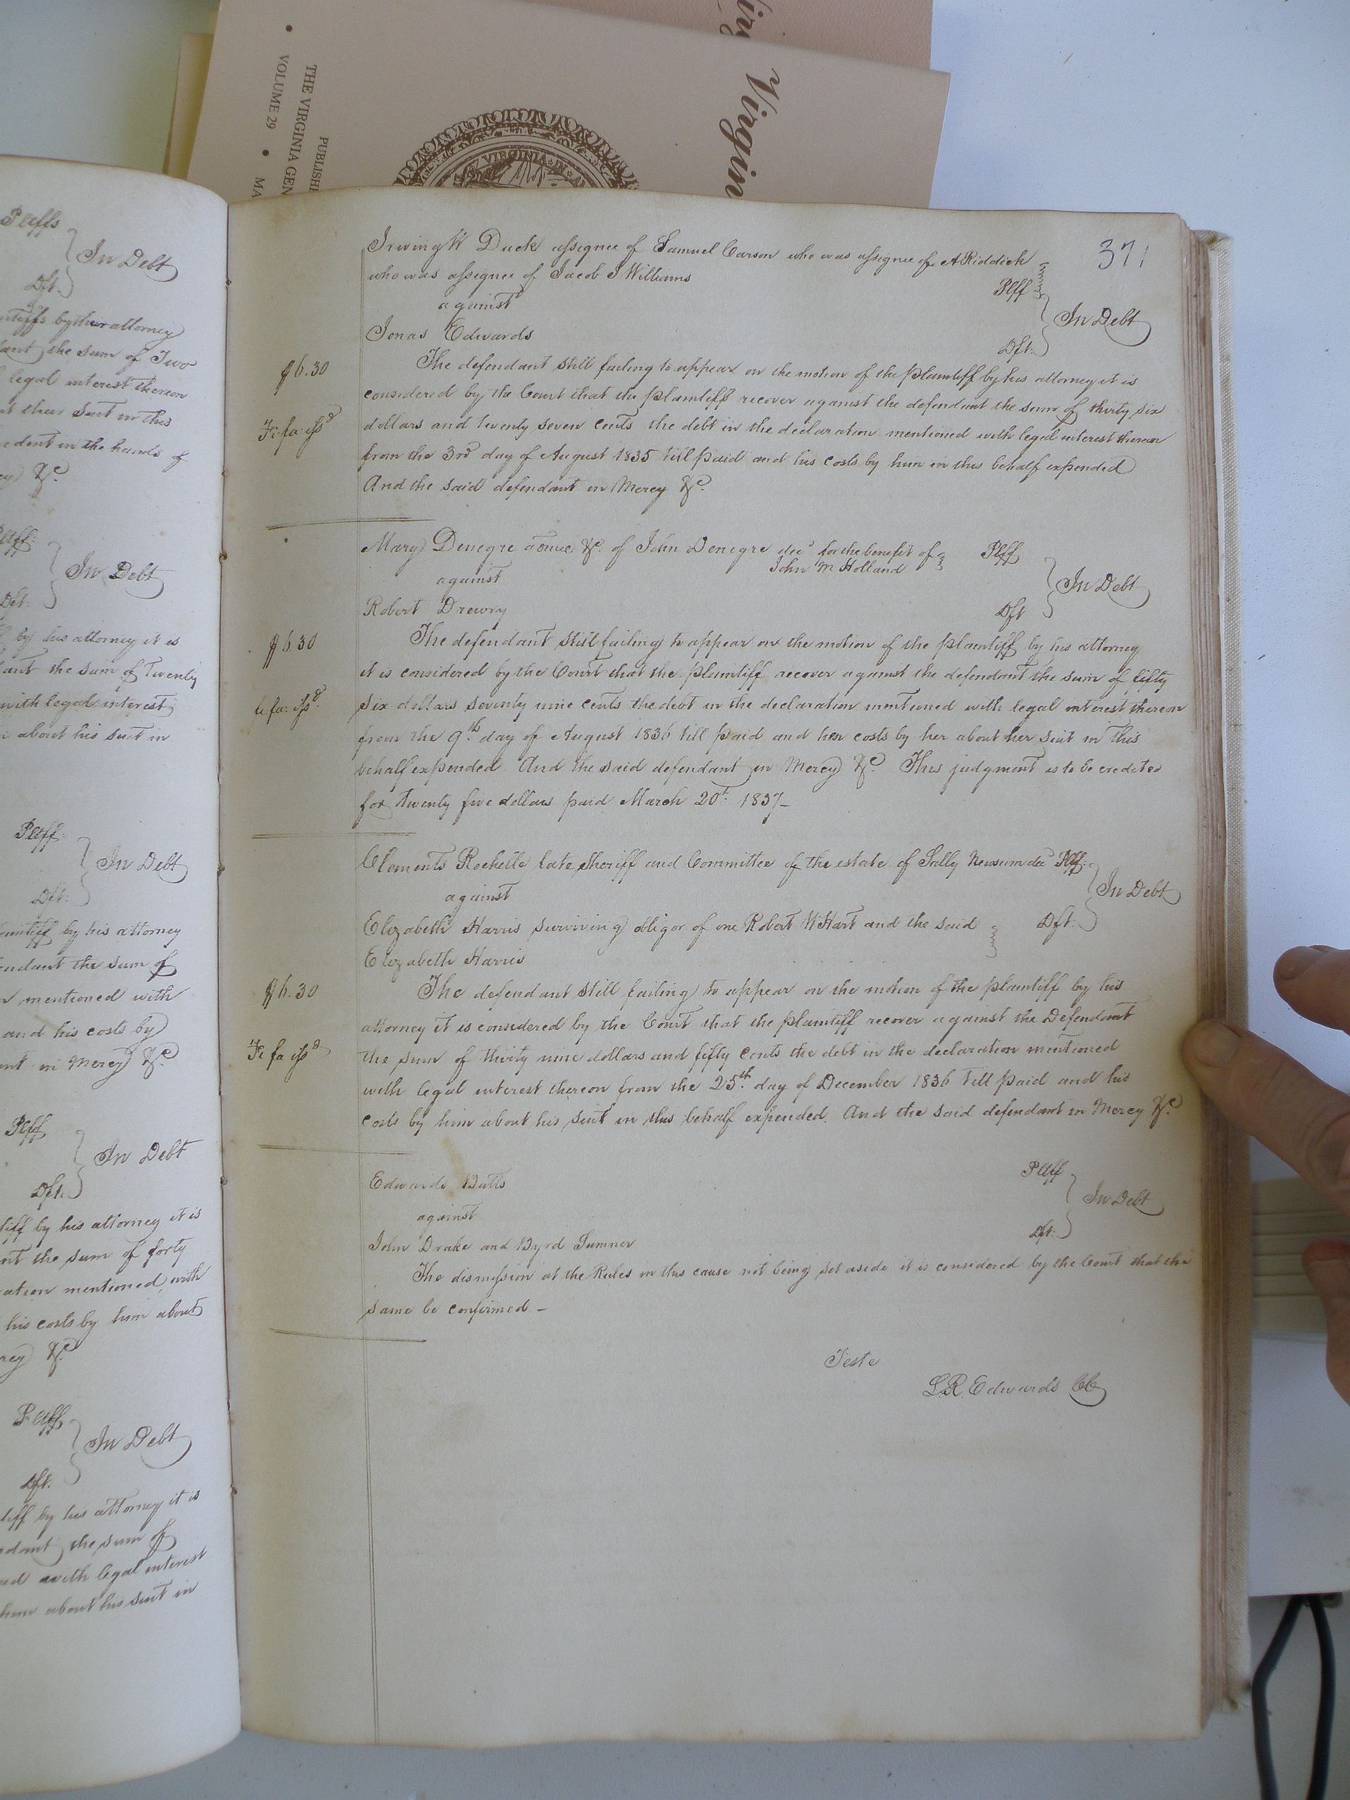 PUBLISH
THE VIRGINIA GEN
VOLUME 29 • MA
Virgin
VIRGINIA
Plffs
In Debt
Dft.
ntiffs by their attorney
dant the sum of Two
legal interest thereon
ut their suit in this
endent in the hands of
cy &c.
Plff
In Debt
Dft.
by his attorney it is
dant the sum of Twenty
with legal interest
about his suit in
Plff
In Debt
Dft.
aintiff by his attorney
endant the sum of
n mentioned with
and his costs by
ant in Mercy &c
Plff
In Debt
Dft.
tiff by his attorney it is
nt the sum of forty
ration mentioned with
his costs by him about
rcy &c.
Plff
In Debt
Dft.
tiff by his attorney it is
ndant the sum of
ned with legal interest
him about his suit in
371
Irwing W Duck assignee of Samuel Carson who was assignee of A Riddick
who was assignee of Jacob J Williams Plff
against
In Debt
Jonas Edwards Dft.
$6.30 The defendant still failing to appear on the motion of the plaintiff by his attorney it is
considered by the Court that the plaintiff recover against the defendant the sum of thirty six
Fi fa issd dollars and twenty seven cents the debt in the declaration mentioned with legal interest thereon
from the 3rd day of August 1835 till paid and his costs by him in this behalf expended
And the said defendant in Mercy &c.
Mary Denegre admx. &c. of John Denegre decd for the benefit of Plff
John M Holland
against
In Debt
Robert Drewry Dft
$6.30 The defendant still failing to appear on the motion of the plaintiff by his attorney
it is considered by the Court that the plaintiff recover against the defendant the sum of fifty
fi fa issd. six dollars seventy nine cents the debt in the declaration mentioned with legal interest thereon
from the 9th day of August 1836 till paid and her costs by her about her suit in this
behalf expended. And the said defendant in Mercy &c. This judgment is to be credited
for twenty five dollars paid March 20th 1837—
Clements Rochelle late Sheriff and Committee of the estate of Sally Newsum decd Plff
against
In Debt
Elizabeth Harris surviving obligor of one Robert W Hart and the said Dft.
Elizabeth Harris
$6.30 The defendant still failing to appear on the motion of the plaintiff by his
attorney it is considered by the Court that the plaintiff recover against the Defendant
Fi fa issd the sum of thirty nine dollars and fifty cents the debt in the declaration mentioned
with legal interest thereon from the 25th. day of December 1836 till paid and his
costs by him about his suit in this behalf expended. And the said defendant in Mercy &c.
Edwards Butts Plff
against
In Debt
John Drake and Byrd Sumner Dft.
The dismission at the Rules in this cause not being set aside it is considered by the Court that the
same be confirmed—
Teste
L R Edwards CC